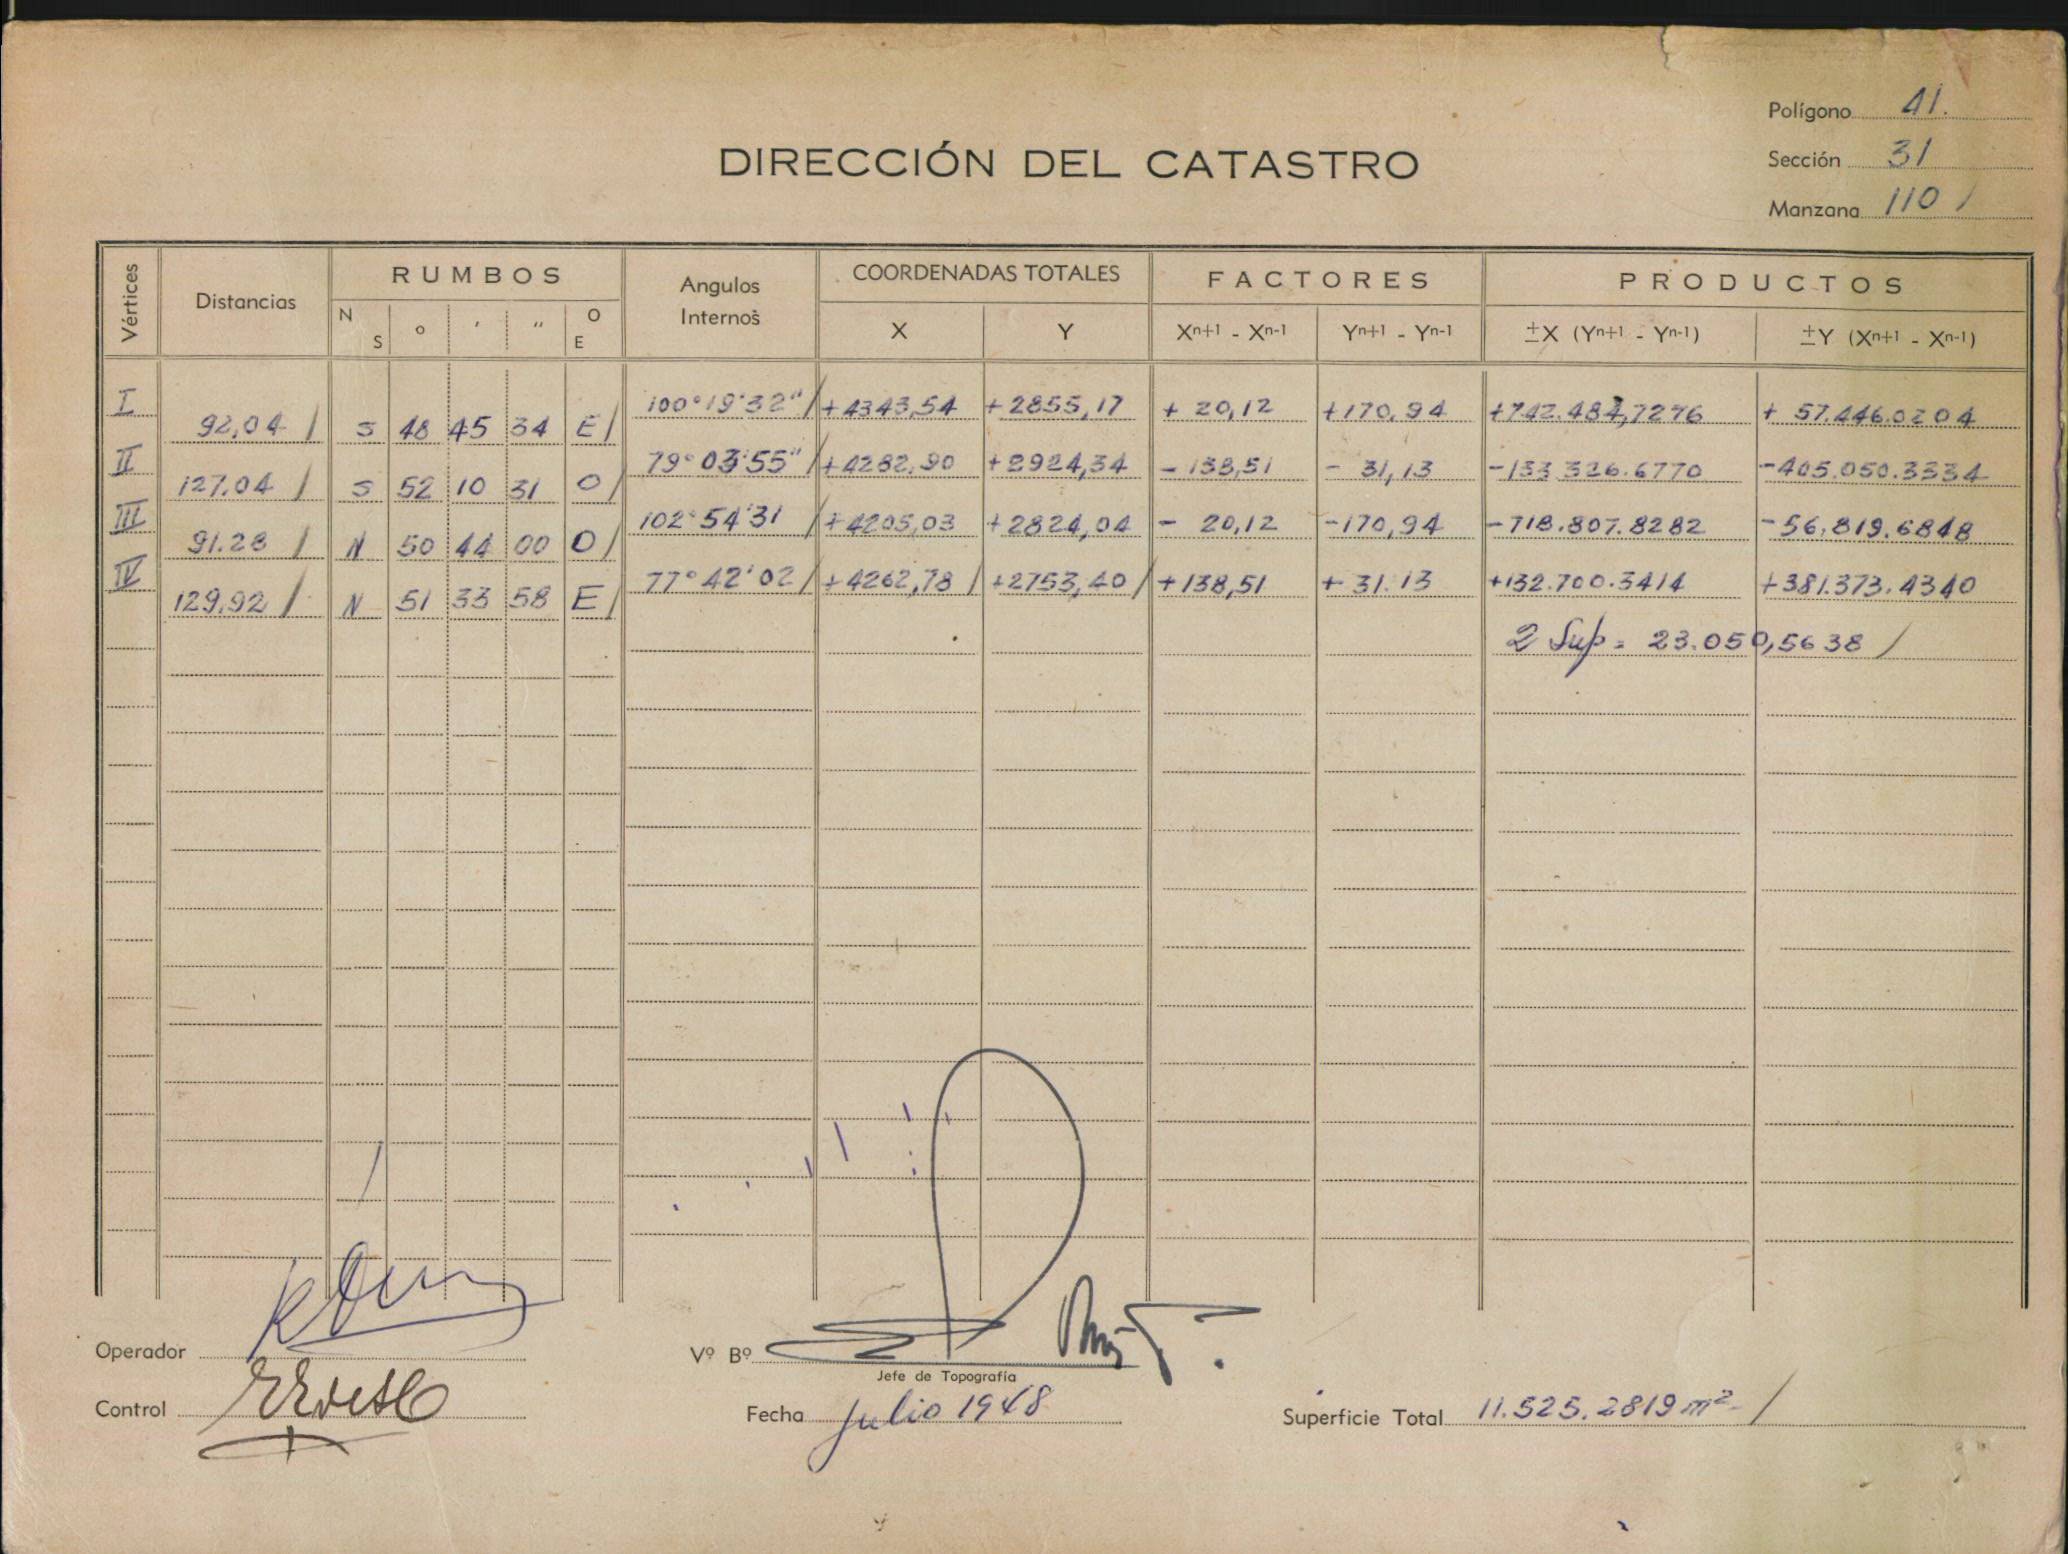 Polígono 41.
Sección 31
Manzana 110 /
DIRECCIÓN DEL CATASTRO
Vértices Distancias RUMBOS Angulos Internos COORDENADAS TOTALES FACTORES PRODUCTOS
N S ° ' " O E X Y Xn+1 - Xn-1 Yn+1 - Yn-1 ±X (Yn+1 - Yn-1) ±Y (Xn+1 - Xn-1)
I 100°19'32" / +4343,54 +2855,17 + 20,12 +170,94 +742.484,7276 + 57.446.0204
92,04 / S 48 45 34 E /
II 79°03'55" / +4282.90 +2924,34 - 138,51 - 31,13 -133.326.6770 -405.050.3334
127.04 / S 52 10 31 O /
III 102°54'31 / +4205,03 +2824,04 - 20,12 -170,94 -718.807.8282 -56.819.6848
91.28 / N 50 44 00 O /
IV 77°42'02 / +4262,78 / +2753,40 / +138,51 + 31.13 +132.700.3414 +381.373.4340
129,92 / N 51 33 58 E /
2 Sup = 23.050,5638 /
Operador
Vº Bº
Jefe de Topografía
Control
Fecha Julio 1948
Superficie Total 11.525.2819 m² /